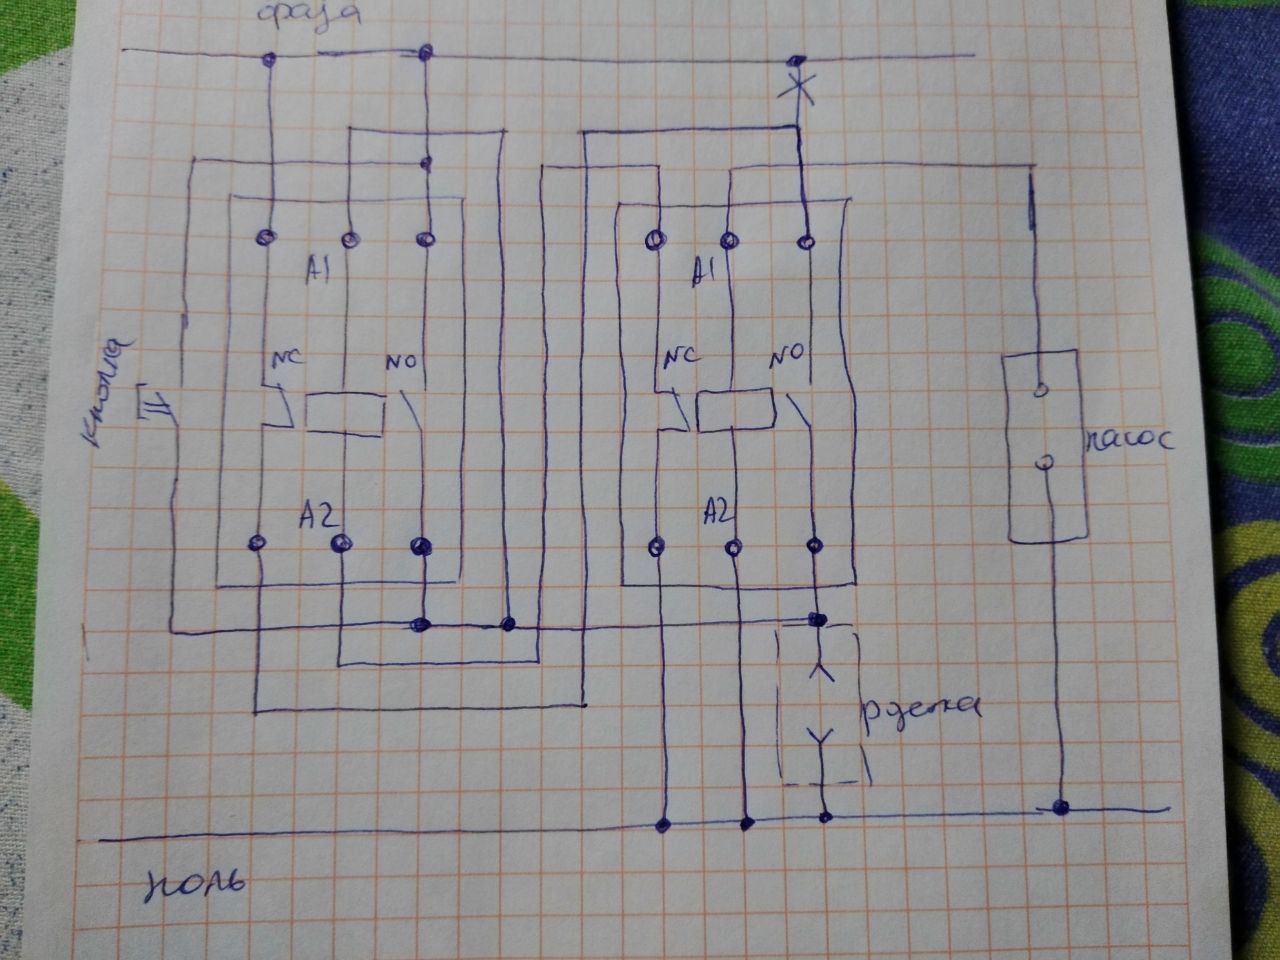 фаза
A1
A1
NC
NO
NC
NO
кнопка
насос
A2
A2
розетка
ноль